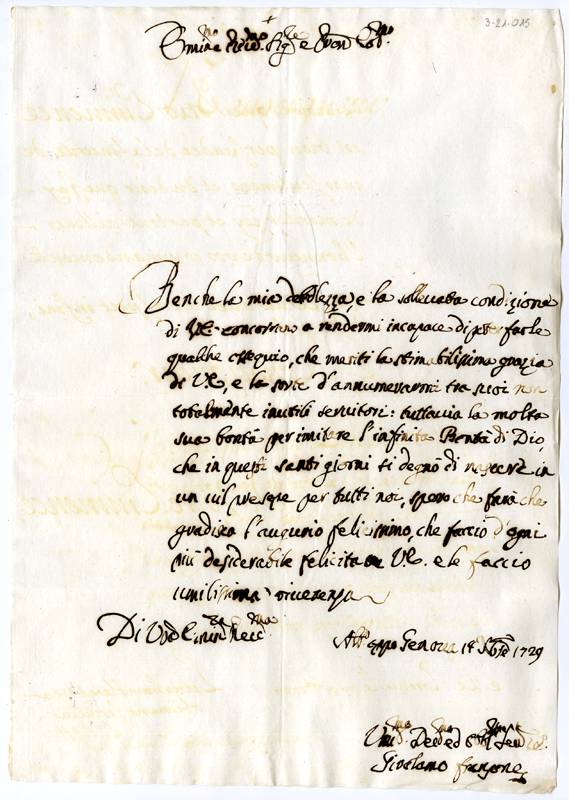 3-21-015
Em.mo e Rev.mo Sig.re e Pron Col.mo
Benche la mia debolezza, e la sollevata condizione
di V.E. concorrino a rendermi incapace di poter farle
qualche ossequio, che meriti la stimabilissima grazia
di V.E., e la sorte d'annumerarmi tra suoi non
totalmente inutili servitori: tuttavia la molta
sua bontà per imitare l'infinita Bontà di Dio,
che in questi santi giorni si degnò di nascere in
un vil presepe per tutti noi, spero che farà che
gradisca l'augurio felicissimo, che faccio d'ogni
più desiderabile felicità a V.E. e le faccio
umilissima riverenza
Di V.ra Em.za Rev.ma
Genova 14 Xbre 1729
Um.mo Dev.mo ed Obl.mo Serv.re
Girolamo franzone